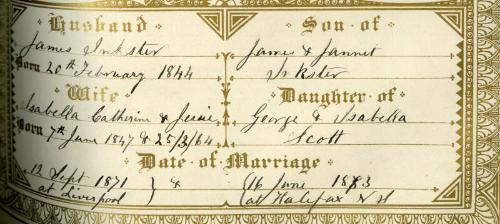 Husband Son of
James Inkster James & Jannet
Born 20th February 1844 Inkster
Wife Daughter of
Isabella Catherine & Jessie George & Isabella
Born 7th June 1847 & 25/3/64 Scott
Date of Marriage
12 Sept 1871 } & (16 June 1883
at Liverpool } (at Halifax N S